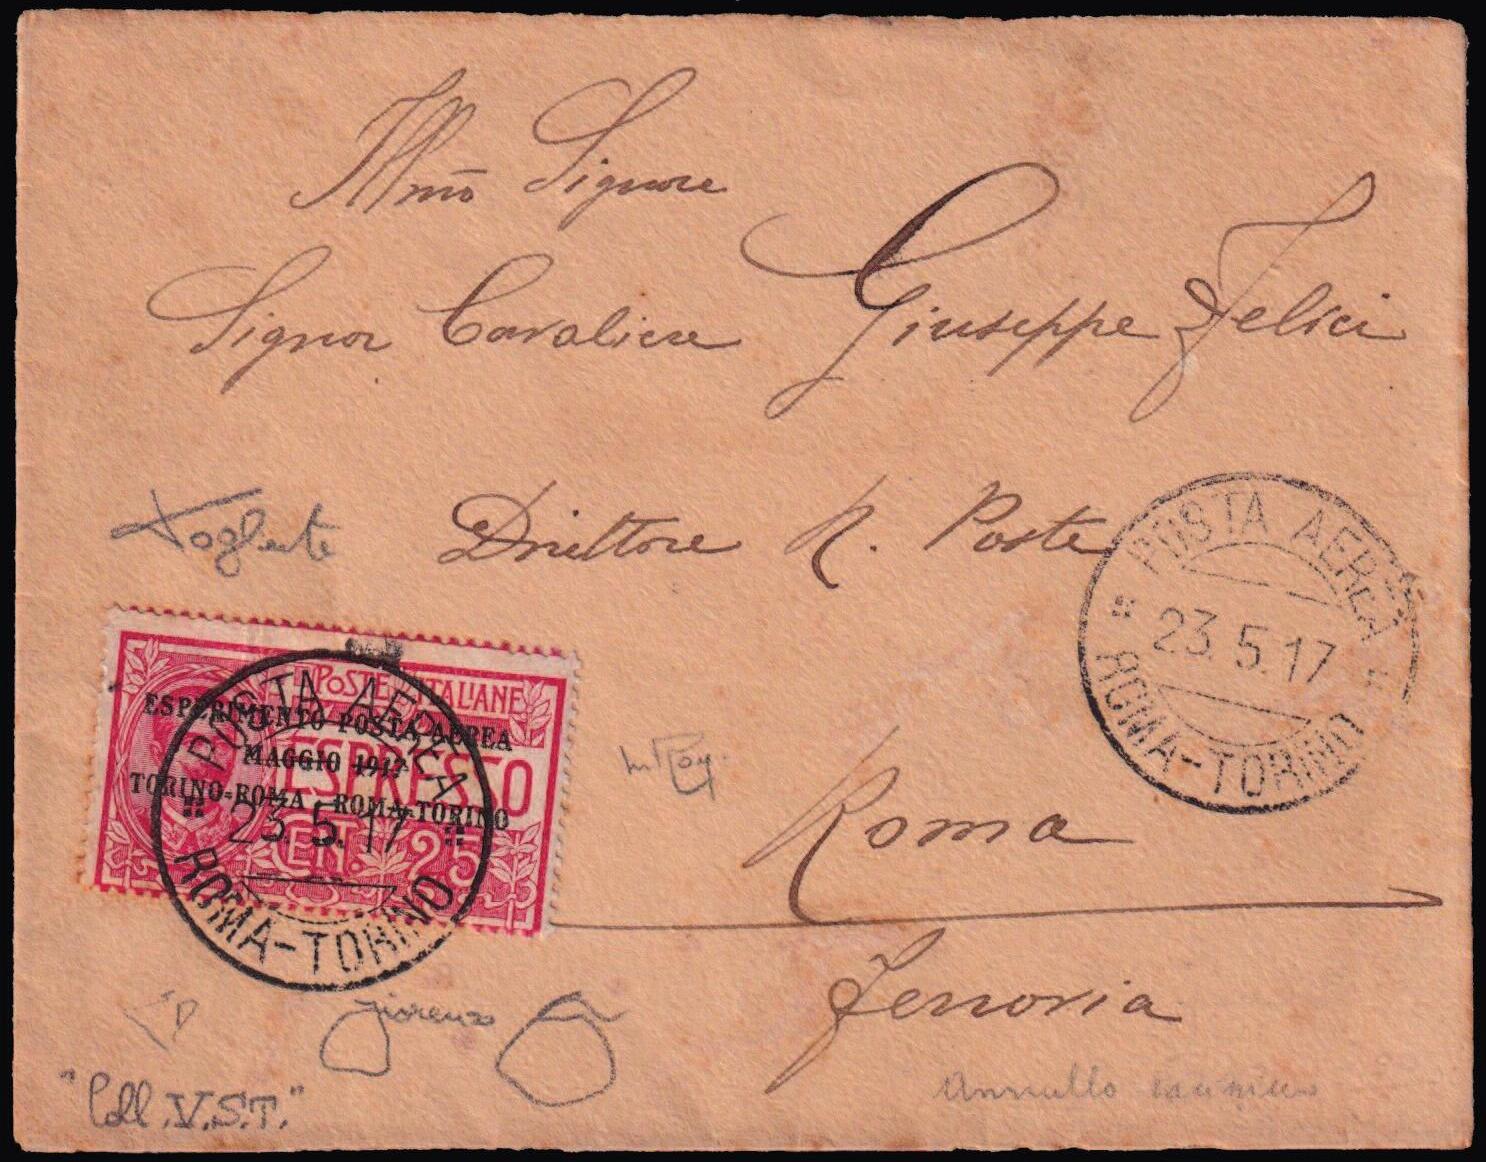 Illmõ Signore
Signor Cavaliere Giuseppe Felici
Direttore R. Poste
Roma
Ferrovia
POSTA AEREA
23.5.17
ROMA-TORINO
POSTE ITALIANE
ESPRESSO
CENT. 25
ESPERIMENTO POSTA AEREA
MAGGIO 1917
TORINO-ROMA . ROMA-TORINO
POSTA AEREA
23.5.17
ROMA-TORINO
fiorenzo
"Coll V.S.T."
Annullo